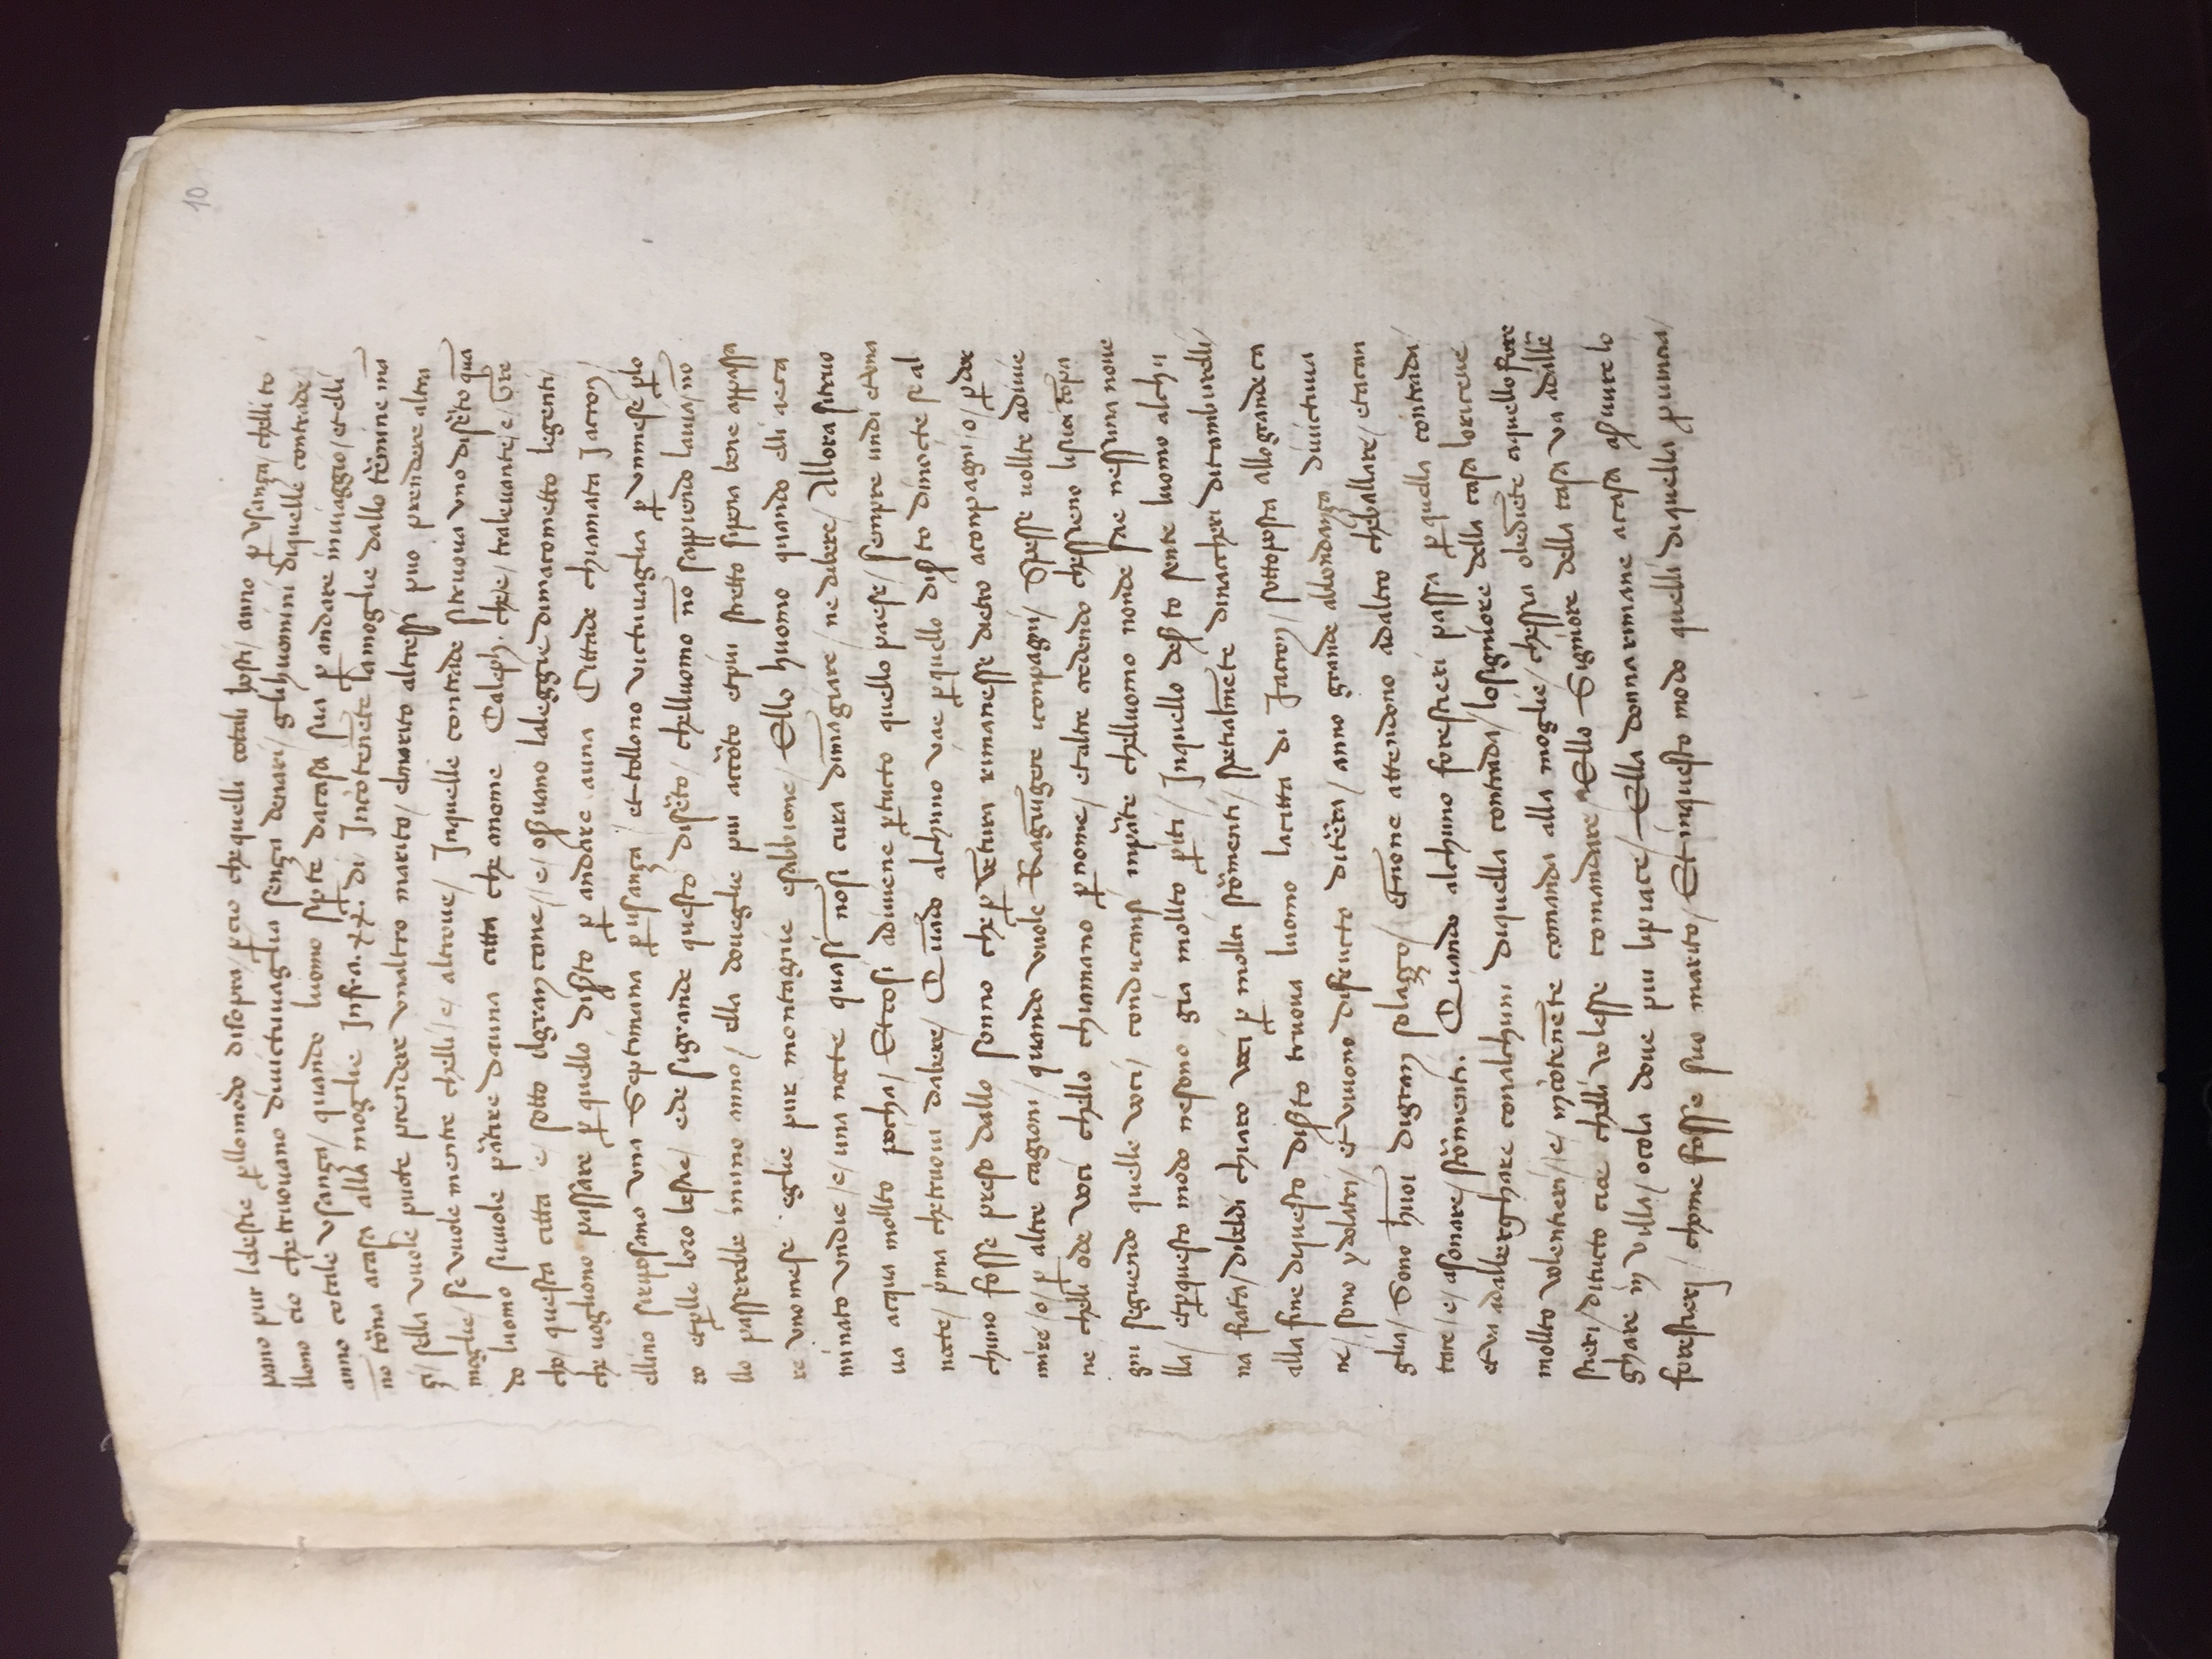 10
pano pur lebestie ꝑllomodo disopra / ꝑcio chequelli cotali hosti / anno ꝑ vsanza / chelli to
llono cio chetruouano diuictuuaglia senza denari / glihuomini diquelle contrade /
anno cotale vsanza / quando luomo siꝑte dacasa sua ꝑ andare inuiaggio / et elli
nō tōna acasa alla moglie Infra .xx. di / Incōtenēte lamoglie dallo tēmine inā
zi / sella vuole puote prendere vnaltro marito / elmarito altressi puo prendere altra
moglie / se vuole mentre chelli / e / altroue / Inquelle contrade sitruoua vno disēto quā
do luomo siuuole pātire dauna citta che anome Caleph . che / e / tralevante / e / Gre
cho / questa citta e sotto ilgran cane / / e / osꝑuano laleggie dimacometto legenti /
che uogliono passare ꝑ quello disꝑto ꝑ andare auna Cittade chiamata Jacron /
ellino siriposano vna Septimana ꝑ usanza / et tollono victuuaglia ꝑ vnmese ꝑlo
ro etꝑlle loro bestie / ede sigrande questo disēto / chelluomo nō sappiendo lauia / nō
llo passerebbe inuno anno / ella doueglie piu accōto etpiu stretto sipena bene appassa
re vnomese eglie pur montagnie esabbione / Ello huomo quando elli aeca
minato vndie / e / una nocte quasi nōsi cura dimāgiare / ne dibere / Allora sitruo
ua acqua mollto pocha / Et cosi adiuiene ꝑtucto quello paese / sempre undi et vna
nocte / p̄ma chetruoui dabere / Quādo alchuno vae ꝑquello disꝑto dinocte se al
chuno fosse preso dallo sonno che ꝑ vētura rimanesse dietro aconpagni / o / ꝑ dor
mire / o / ꝑ altre cagioni / quando vuole Ragiūgere iconpagni / Spesse uollte adiuie
ne chelli ode voci chello chiamano ꝑ nome / et altre credendo chessieno lisuoi cōpa
gni seguendo quelle voci / conducansi inpāte chelluomo nonde sae nessuna noue
lla / etꝑquesto modo nesono gia mollto ꝑiti / Inquello desꝑto sente luomo alchu
na fiata / dibeldi chiaro voci ꝑ mollti stōmenti / spetialmēte dinaccheri ditamburelli /
alla fine diquesto disꝑto truoua luomo lacitta di Jacron / sottoposta allo grande ca
ne / sono ydolatri / et viuono difructo ditēra / anno grande abbondanza diuictuua
glia / Sono hūoi digran solazzo / et nōne attendono adaltro cheballare / et acan
tare / e / asonare / stōmenti . Quando alchuno forestieri passa ꝑ quella contrada /
et va adalberghare conalchuni diquella contrada / losigniore della casa loriceue
mollto volentieri / / e / incōtenēte comanda alla moglie / chessia obediēte aquello fore
stieri / ditucto cioe chelli volesse comandare / Ello Signiore della casa va adalbē
ghare in villa / ocola doue piu lipiace / Ella donna rimane acasa asꝑuire lo
forestieri / chome fosse suo marito / Et inquesto modo quelli diquella ꝓuincia /